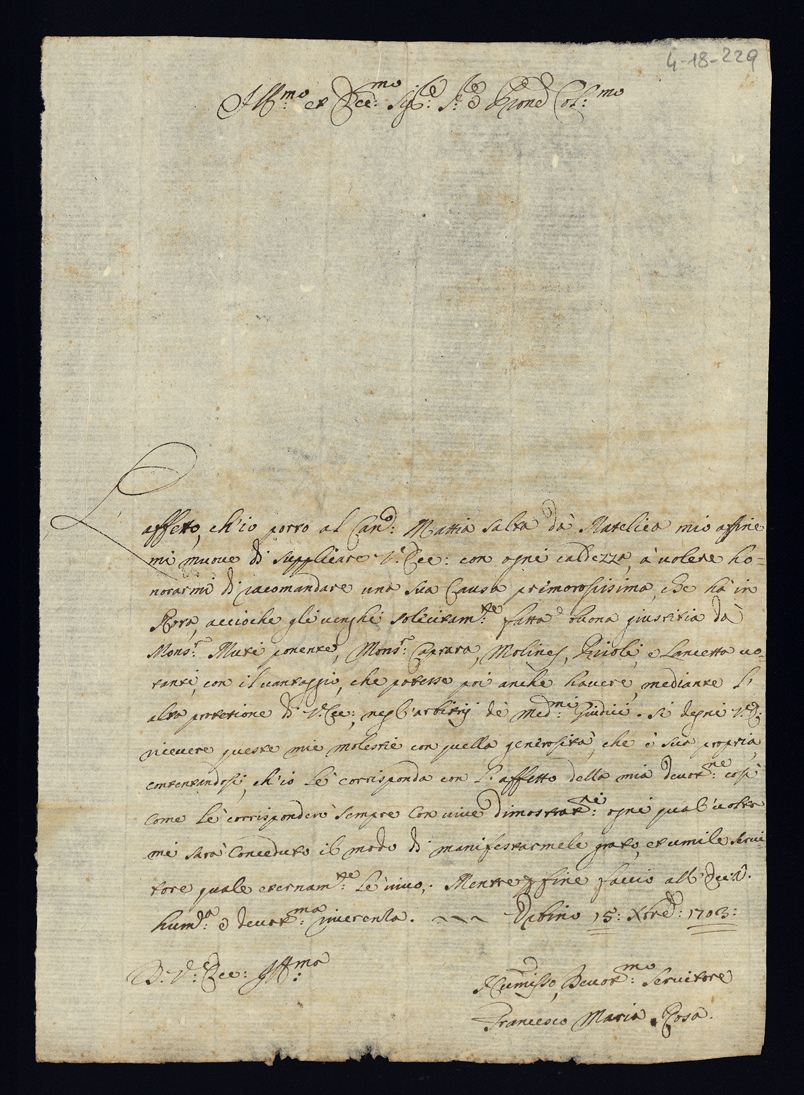 4-18-229
Ill:mo et Ecc:mo Sig:re S:re e Prone Col:mo
L'affetto, ch'io porto al Can:co Mattia Salta da Matelica mio affine
mi muove di supplicare V: Ecc: con ogni caldezza, à volere ho=
norarmi di racomandare una sua Causa primorosissima, che hà in
Rota, accioche gli venghi solicitam:te fatta buona giustitia dà
Mons:r Muti ponente, Mons:r Caprara, Molines, Priolì, e Lancetta vo=
tanti, con il vantaggio, che potesse poi anche havere, mediante l'
alta protetione di V: Ecc:, negl'arbitrij de med:mi Giudici. Si degni V: E:
ricevere queste mie molestie con quella generosità, che è sua propria,
contentandosi, ch'io le corrisponda con l'affetto della mia devot:ne così
come le corrisponderò sempre con vive dimostrat:ni ogni qual'volta
mi sarà conceduto il modo di manifestarmele grato, et umile servi=
tore quale eternam:te le vivo,. Mentre p fine faccio all'Ecc: V:
hum:a e devot:ma riverenza. Urbino 15: Xbre: 1703:
D: V: Ecc: Ill:ma
Humilisso, Devot:mo Servitore
Francesco Maria Rosa.